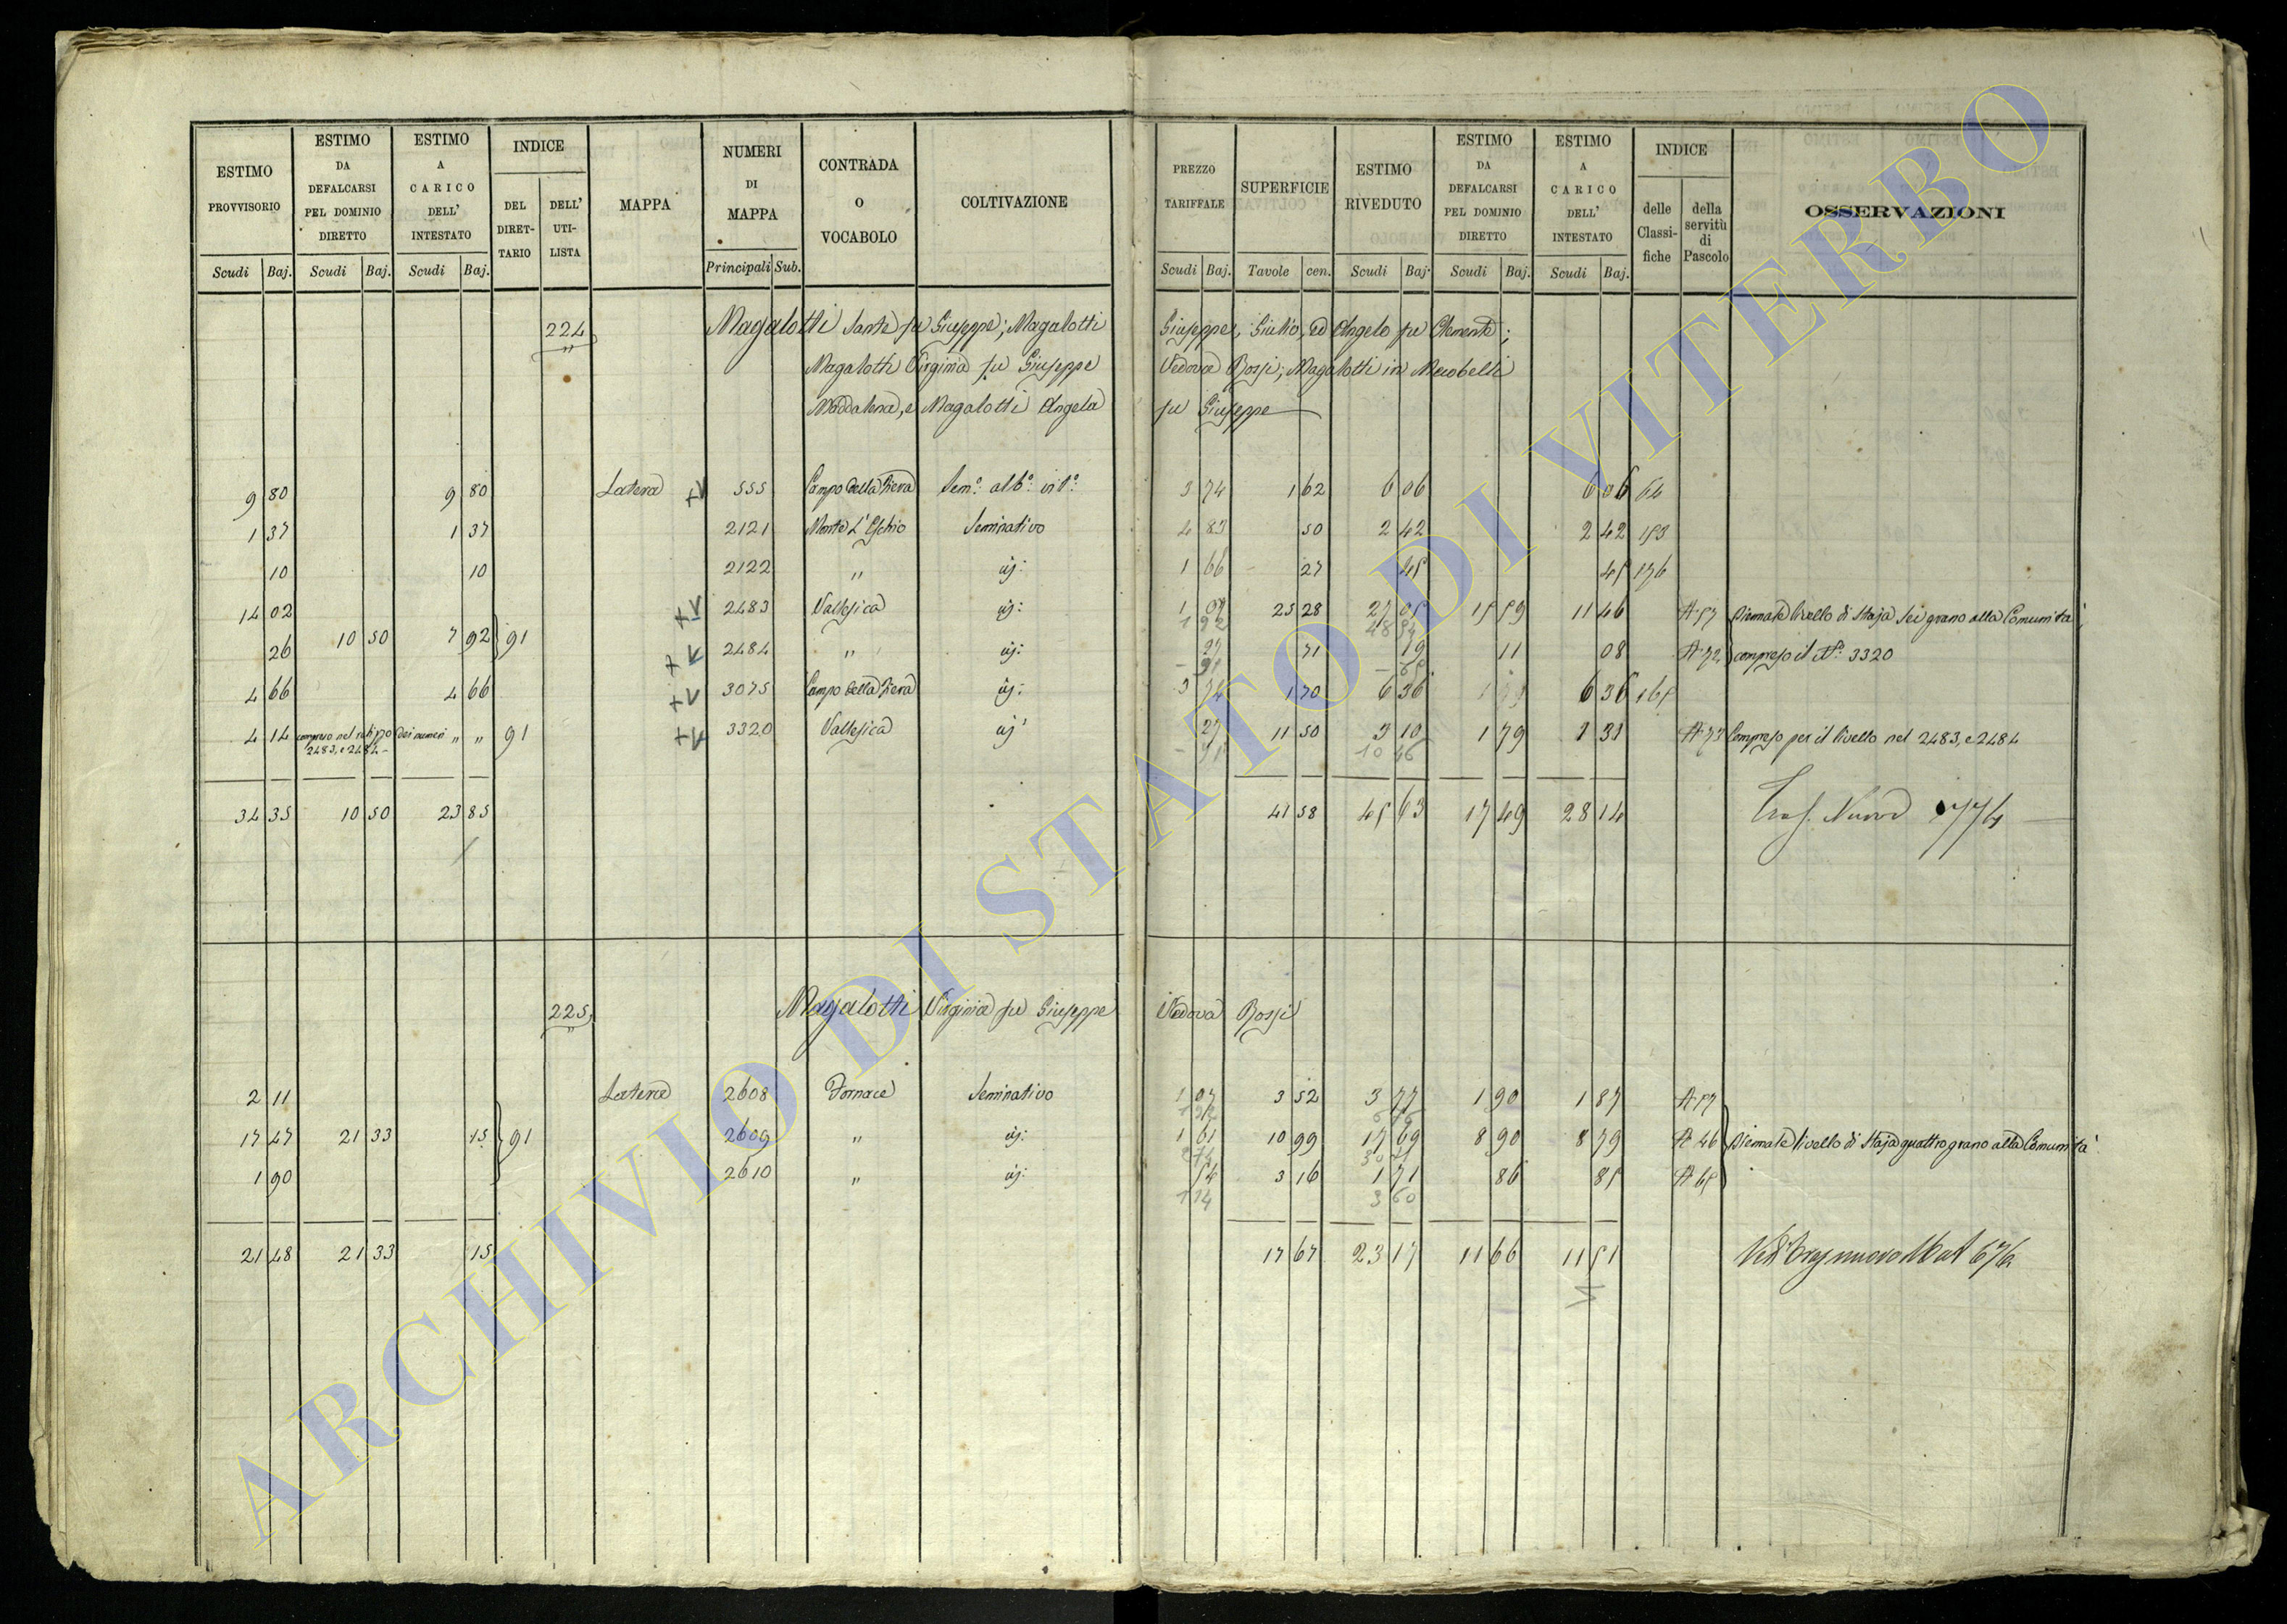 ESTIMO PROVVISORIO | ESTIMO DA DEFALCARSI PEL DOMINIO DIRETTO | ESTIMO A CARICO DELL' INTESTATO | INDICE | MAPPA | NUMERI DI MAPPA | CONTRADA O VOCABOLO | COLTIVAZIONE | PREZZO TARIFFALE | SUPERFICIE | ESTIMO RIVEDUTO | ESTIMO DA DEFALCARSI PEL DOMINIO DIRETTO | ESTIMO A CARICO DELL' INTESTATO | INDICE | OSSERVAZIONI
DEL DIRETTARIO | DELL' UTILISTA | delle Classifiche | della servitù di Pascolo
Scudi | Baj. | Scudi | Baj. | Scudi | Baj. | Principali | Sub. | Scudi | Baj. | Tavole | cen. | Scudi | Baj. | Scudi | Baj. | Scudi | Baj.
224 Magalotti Sante fu Giuseppe; Magalotti Giuseppe, Giulio, ed Angelo fu Clemente;
Magalotti Virginia fu Giuseppe Vedova Rossi; Magalotti in
Maddalena, e Magalotti Angela fu Giuseppe
9 80 | 9 80 | Latera | 555 | Campo della Fiera | Sem.o alb.o vit.o | 3 74 | 1 62 | 6 06 | 6 06 | 64
1 37 | 1 37 | 2121 | Monte L'Eschio | Seminativo | 4 83 | 50 | 2 42 | 2 42 | 153
10 | 10 | 2122 | " | 1 66 | 27 | 45 | 45 | 176
14 02 | 2483 | Vallesica | 1 07 | 25 28 | 27 05 | 15 59 | 11 46 | A 57 | Biennale livello di Staja sei grano alla Comunità,
26 | 10 50 | 7 92 | 91 | 2484 | " | 27 | 71 | 19 | 11 | 08 | A 72 | compreso il N.o 3320
4 66 | 4 66 | 3075 | Campo della Fiera | 3 74 | 1 70 | 6 36 | 6 36 | 165
4 14 | compreso nel retizzo dei numeri 2483, e 2484 | " " | 91 | 3320 | Vallesica | 27 | 11 50 | 3 10 | 1 79 | 1 31 | A 73 | Compreso per il livello nel 2483, e 2484
34 35 | 10 50 | 23 85 | 41 58 | 45 63 | 17 49 | 28 14 | Nuovo 774
225 Magalotti Virginia fu Giuseppe Vedova Rossi
2 11 | Latera | 2608 | Fornace | Seminativo | 1 07 | 3 52 | 3 77 | 1 90 | 1 87 | A 57
17 47 | 21 33 | 15 | 91 | 2609 | " | 1 61 | 10 99 | 17 69 | 8 90 | 8 79 | A 46 | Biennale livello di Staja quattro grano alla Comunità
1 90 | 2610 | " | 54 | 3 16 | 1 71 | 86 | 85 | A 65
21 48 | 21 33 | 15 | 17 67 | 23 17 | 11 66 | 11 51 | nuovo
ARCHIVIO DI STATO DI VITERBO